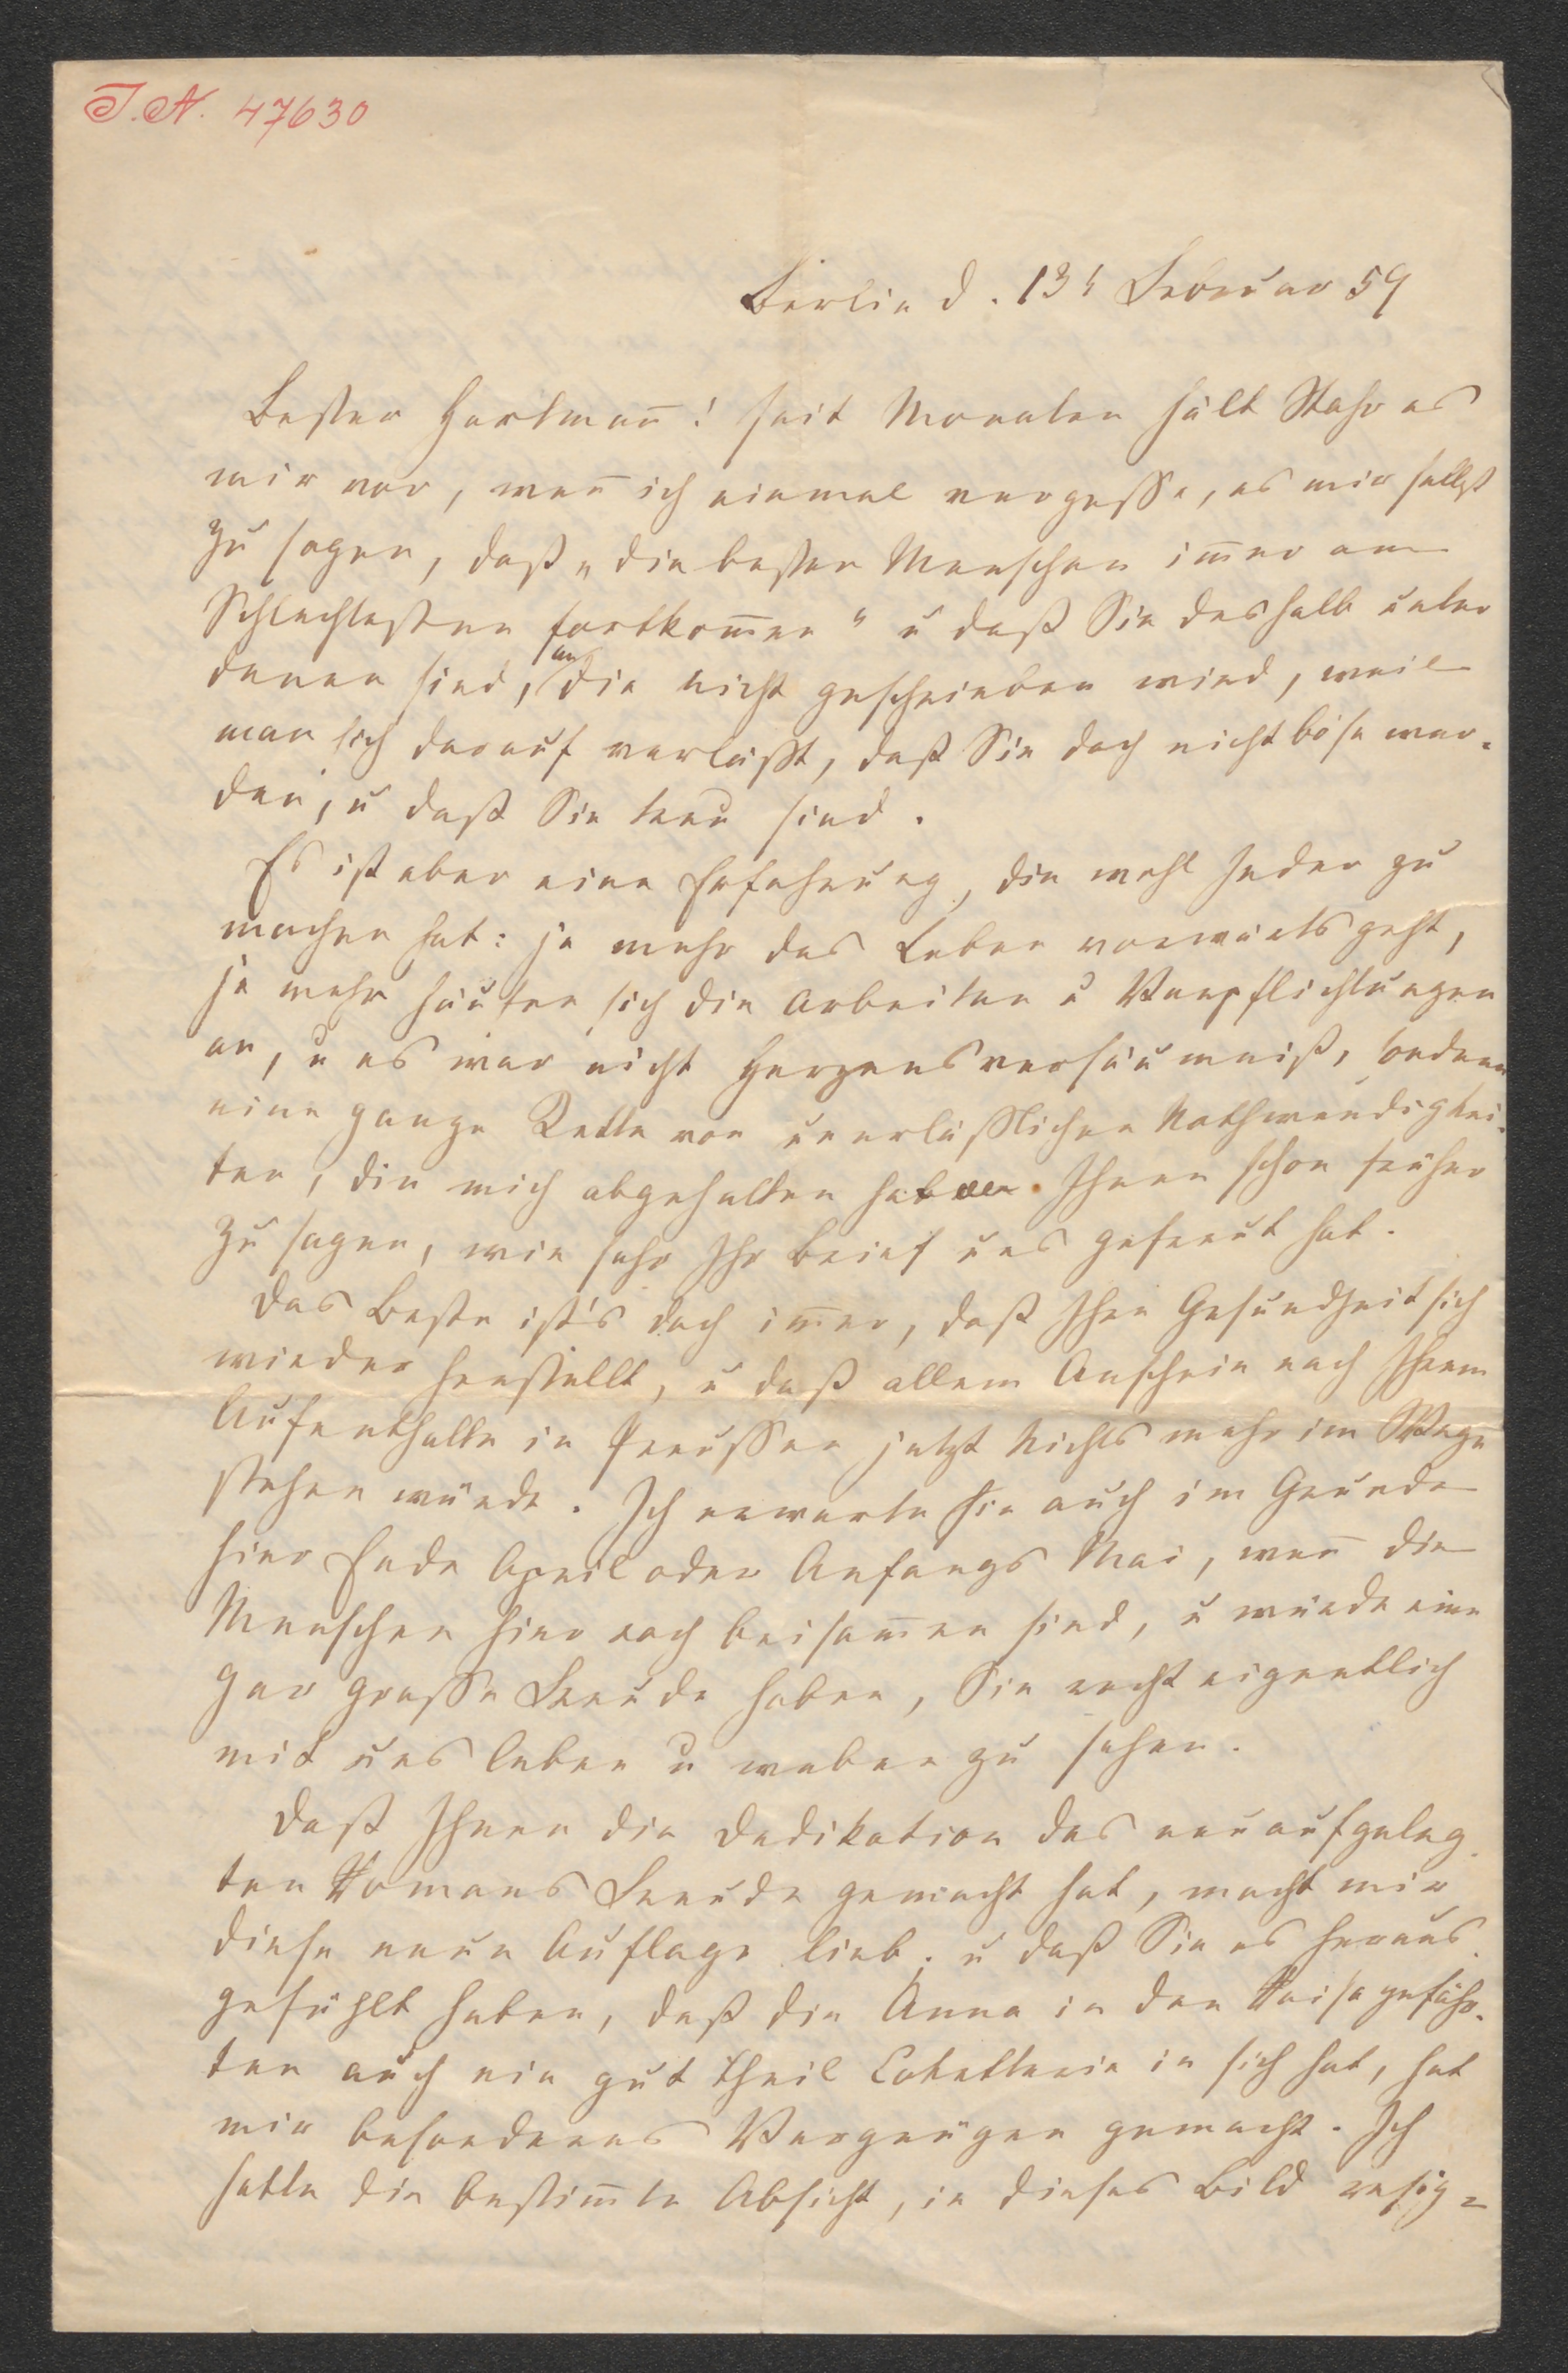 I.N. 47630
Berlin d. 13t Februar 59
Bester Hartmañ! seit Monaten hält Stahr es
mir vor, weñ ich einmal vergesse, es mir selbst
zu sagen, daß „die besten Menschen im̄er am
Schlechtesten fortkom̄en" u daß Sie deshalb unter
denen sind, an die nicht geschrieben wird, weil
man sich darauf verläßt, daß Sie doch nicht böse wer-
den, u daß Sie treu sind.
Es ist aber eine Erfahrung, die wohl Jeder zu
machen hat: je mehr das Leben vorwärts geht,
je mehr häufen sich die Arbeiten u Verpflichtungen
an, u es war nicht Herzensversäumniß, sondern
eine ganze Kette von unerläßlichen Nothwendigkei-
ten, die mich abgehalten haben Ihnen schon früher
zu sagen, wie sehr Ihr Brief uns gefreut hat.
Das Beste ist's doch im̄er, daß Ihre Gesundheit sich
wieder herstellt, u daß allem Anschein nach Ihrem
Aufenthalte in Preussen jetzt Nichts mehr im Wege
stehen würde. Ich erwarte Sie auch im Grunde
hier Ende April oder Anfangs Mai, weñ die
Menschen hier noch beisam̄en sind, u würde eine
gar grosse Freude haben, Sie recht eigentlich
mit uns leben u weben zu sehen.
Daß Ihnen die Dedikation des neuaufgeleg-
ten Romans Freude gemacht hat, macht mir
diese neue Auflage lieb. u daß Sie es heraus-
gefühlt haben, daß die Anna in den Reisegefähr-
ten auch ein gut Theil Coketterie in sich hat, hat
mir besonderes Vergnügen gemacht. Ich
hatte die bestim̄te Absicht, in dieses Bild resig-